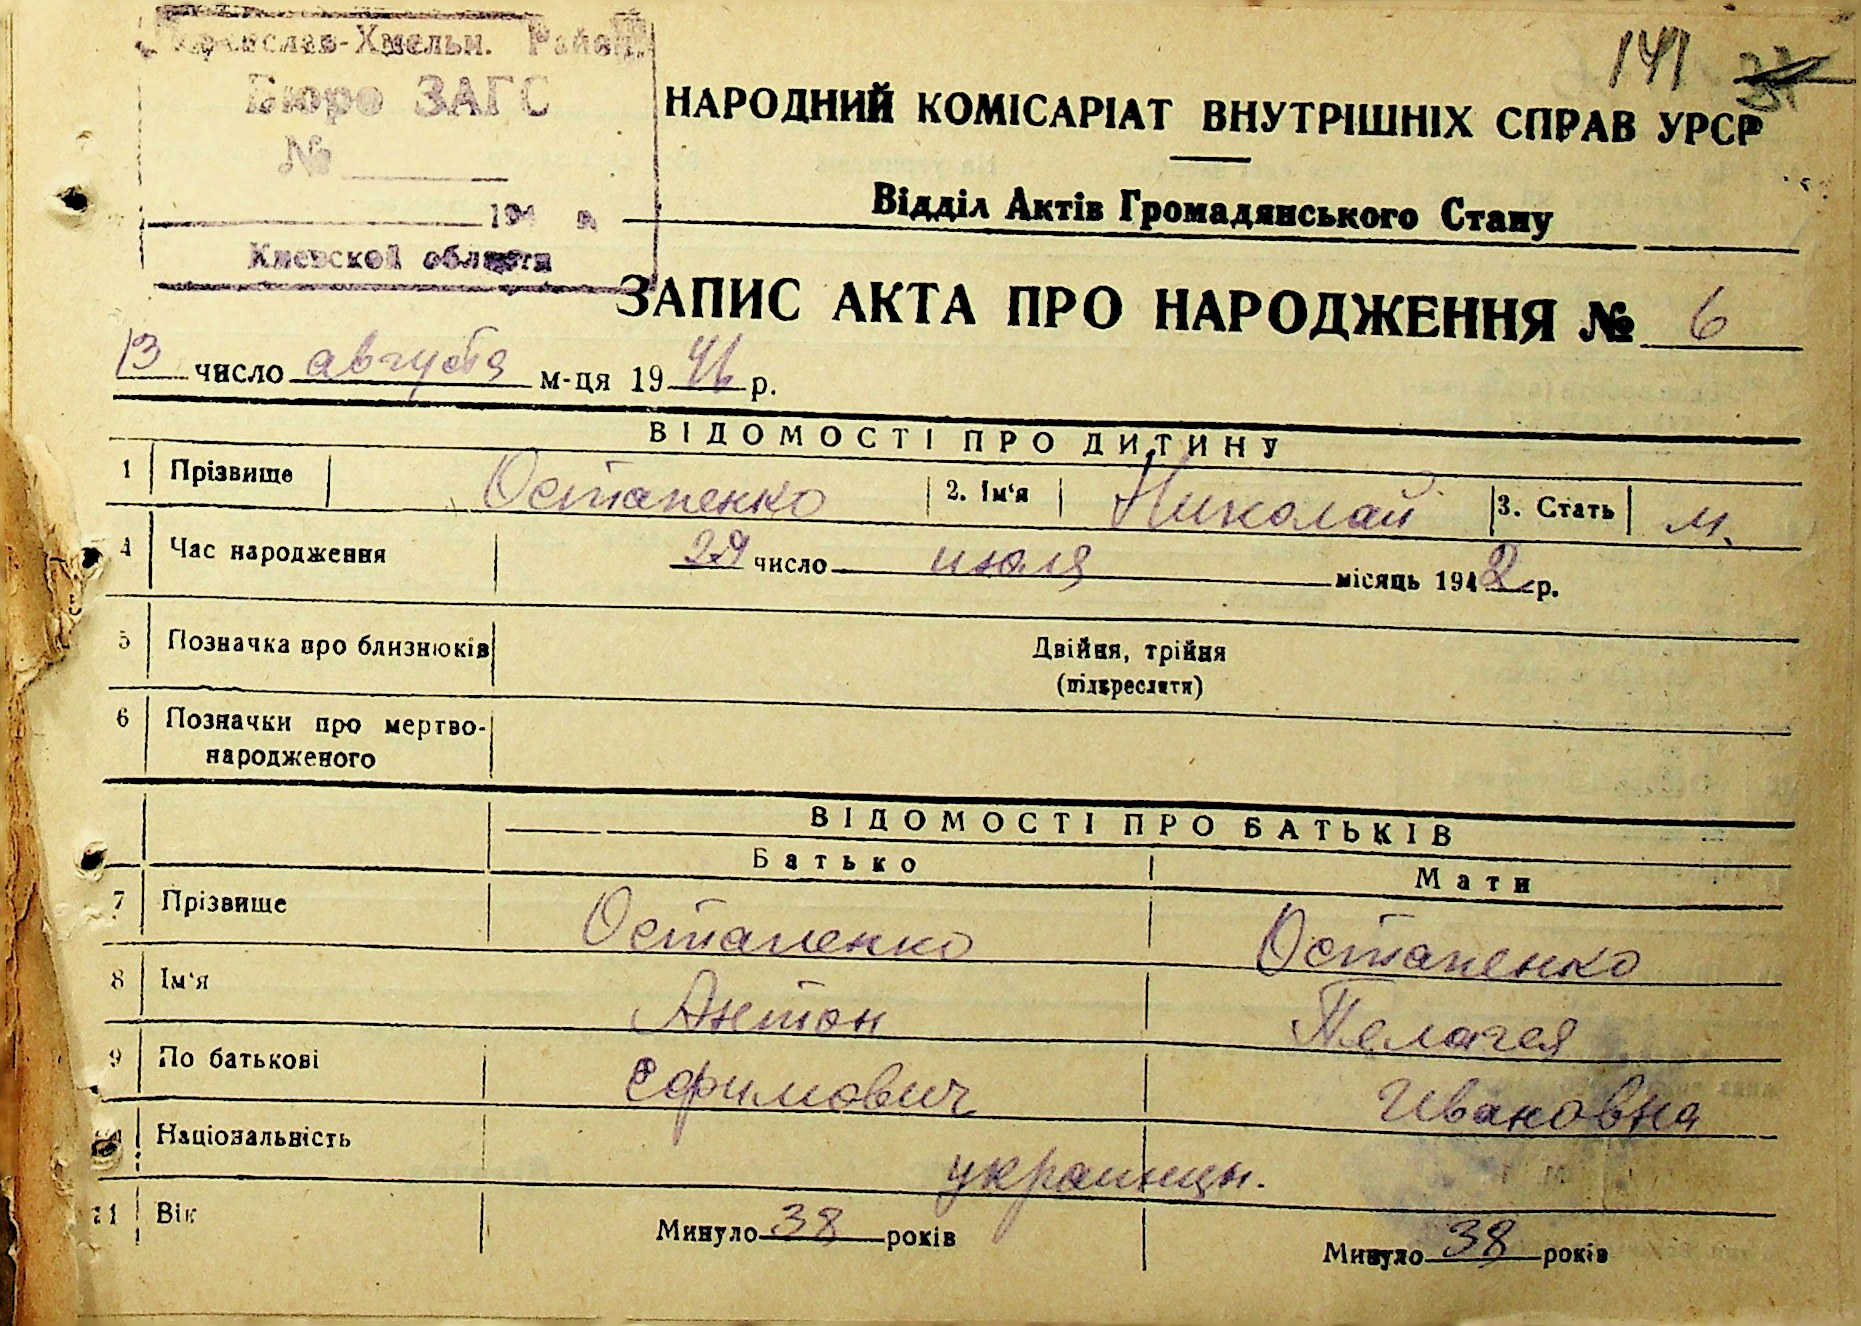 141
Переяслав-Хмельн. Район
Бюро ЗАГС
№
194 р.
Киевской области
НАРОДНИЙ КОМІСАРІАТ ВНУТРІШНІХ СПРАВ УРСР
Відділ Актів Громадянського Стану
ЗАПИС АКТА ПРО НАРОДЖЕННЯ № 6
13 число августа м-ця 19 р.
ВІДОМОСТІ ПРО ДИТИНУ
1 Прізвище Остапенко 2. Ім'я Николай 3. Стать м.
4 Час народження 29 число июля місяць 1942 р.
5 Позначка про близнюків Двійня, трійня
(підкреслити)
6 Позначки про мертво-
народженого
ВІДОМОСТІ ПРО БАТЬКІВ
Батько Мати
7 Прізвище Остапенко Остапенко
8 Ім'я Антон Пелагея
9 По батькові Ефимович Ивановна
Національність украинцы.
11 Вік Минуло 38 років Минуло 38 років